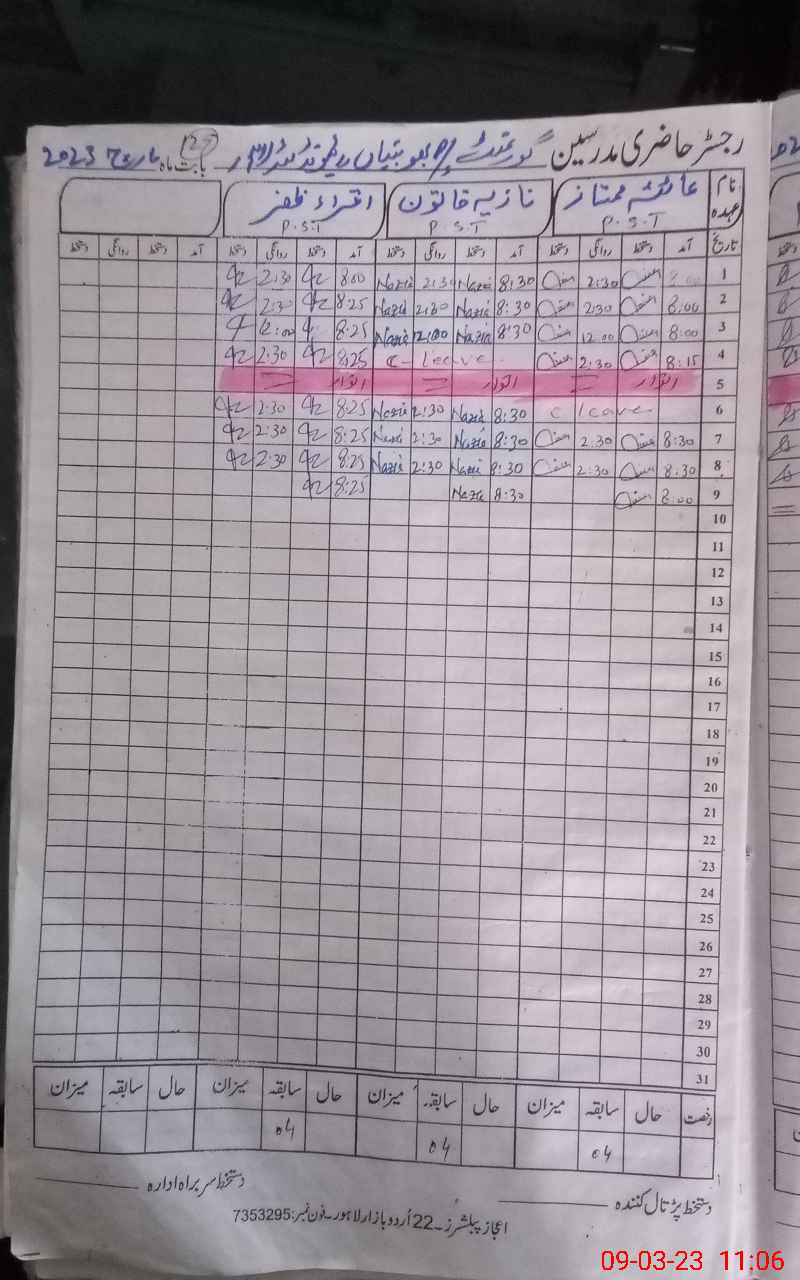 رجسٹر حاضری مدرسین گورنمنٹ بابت ماہ مارچ 2023
نام عہدہ عائشہ ممتاز P.S.T نازیہ خاتون P.S.T اقراء ظفر P.S.T
تاریخ آمد دستخط روانگی دستخط آمد دستخط روانگی دستخط آمد دستخط روانگی دستخط آمد دستخط روانگی دستخط
1 8:00 2:30 8:30 Nazia 2:30 Nazia 8:00 2:30
2 8:00 2:30 8:30 Nazia 2:30 Nazia 8:25 2:30
3 8:00 12:00 8:30 Nazia 12:00 Nazia 8:25 12:00
4 8:15 2:30 C-leave 8:25 2:30
5 اتوار = اتوار = اتوار =
6 C leave 8:30 Nazia 2:30 Nazia 8:25 2:30
7 8:30 2:30 8:30 Nazia 2:30 Nazia 8:25 2:30
8 8:30 2:30 8:30 Nazia 2:30 Nazia 8:25 2:30
9 8:00 8:30 Nazia 8:25
10
11
12
13
14
15
16
17
18
19
20
21
22
23
24
25
26
27
28
29
30
31
رخصت حال سابقہ میزان حال سابقہ میزان حال سابقہ میزان حال سابقہ میزان
04 04 04
دستخط پڑتال کنندہ دستخط سربراہ ادارہ
اعجاز پبلشرز۔22 اُردو بازار لاہور۔فون نمبر:7353295
09-03-23 11:06